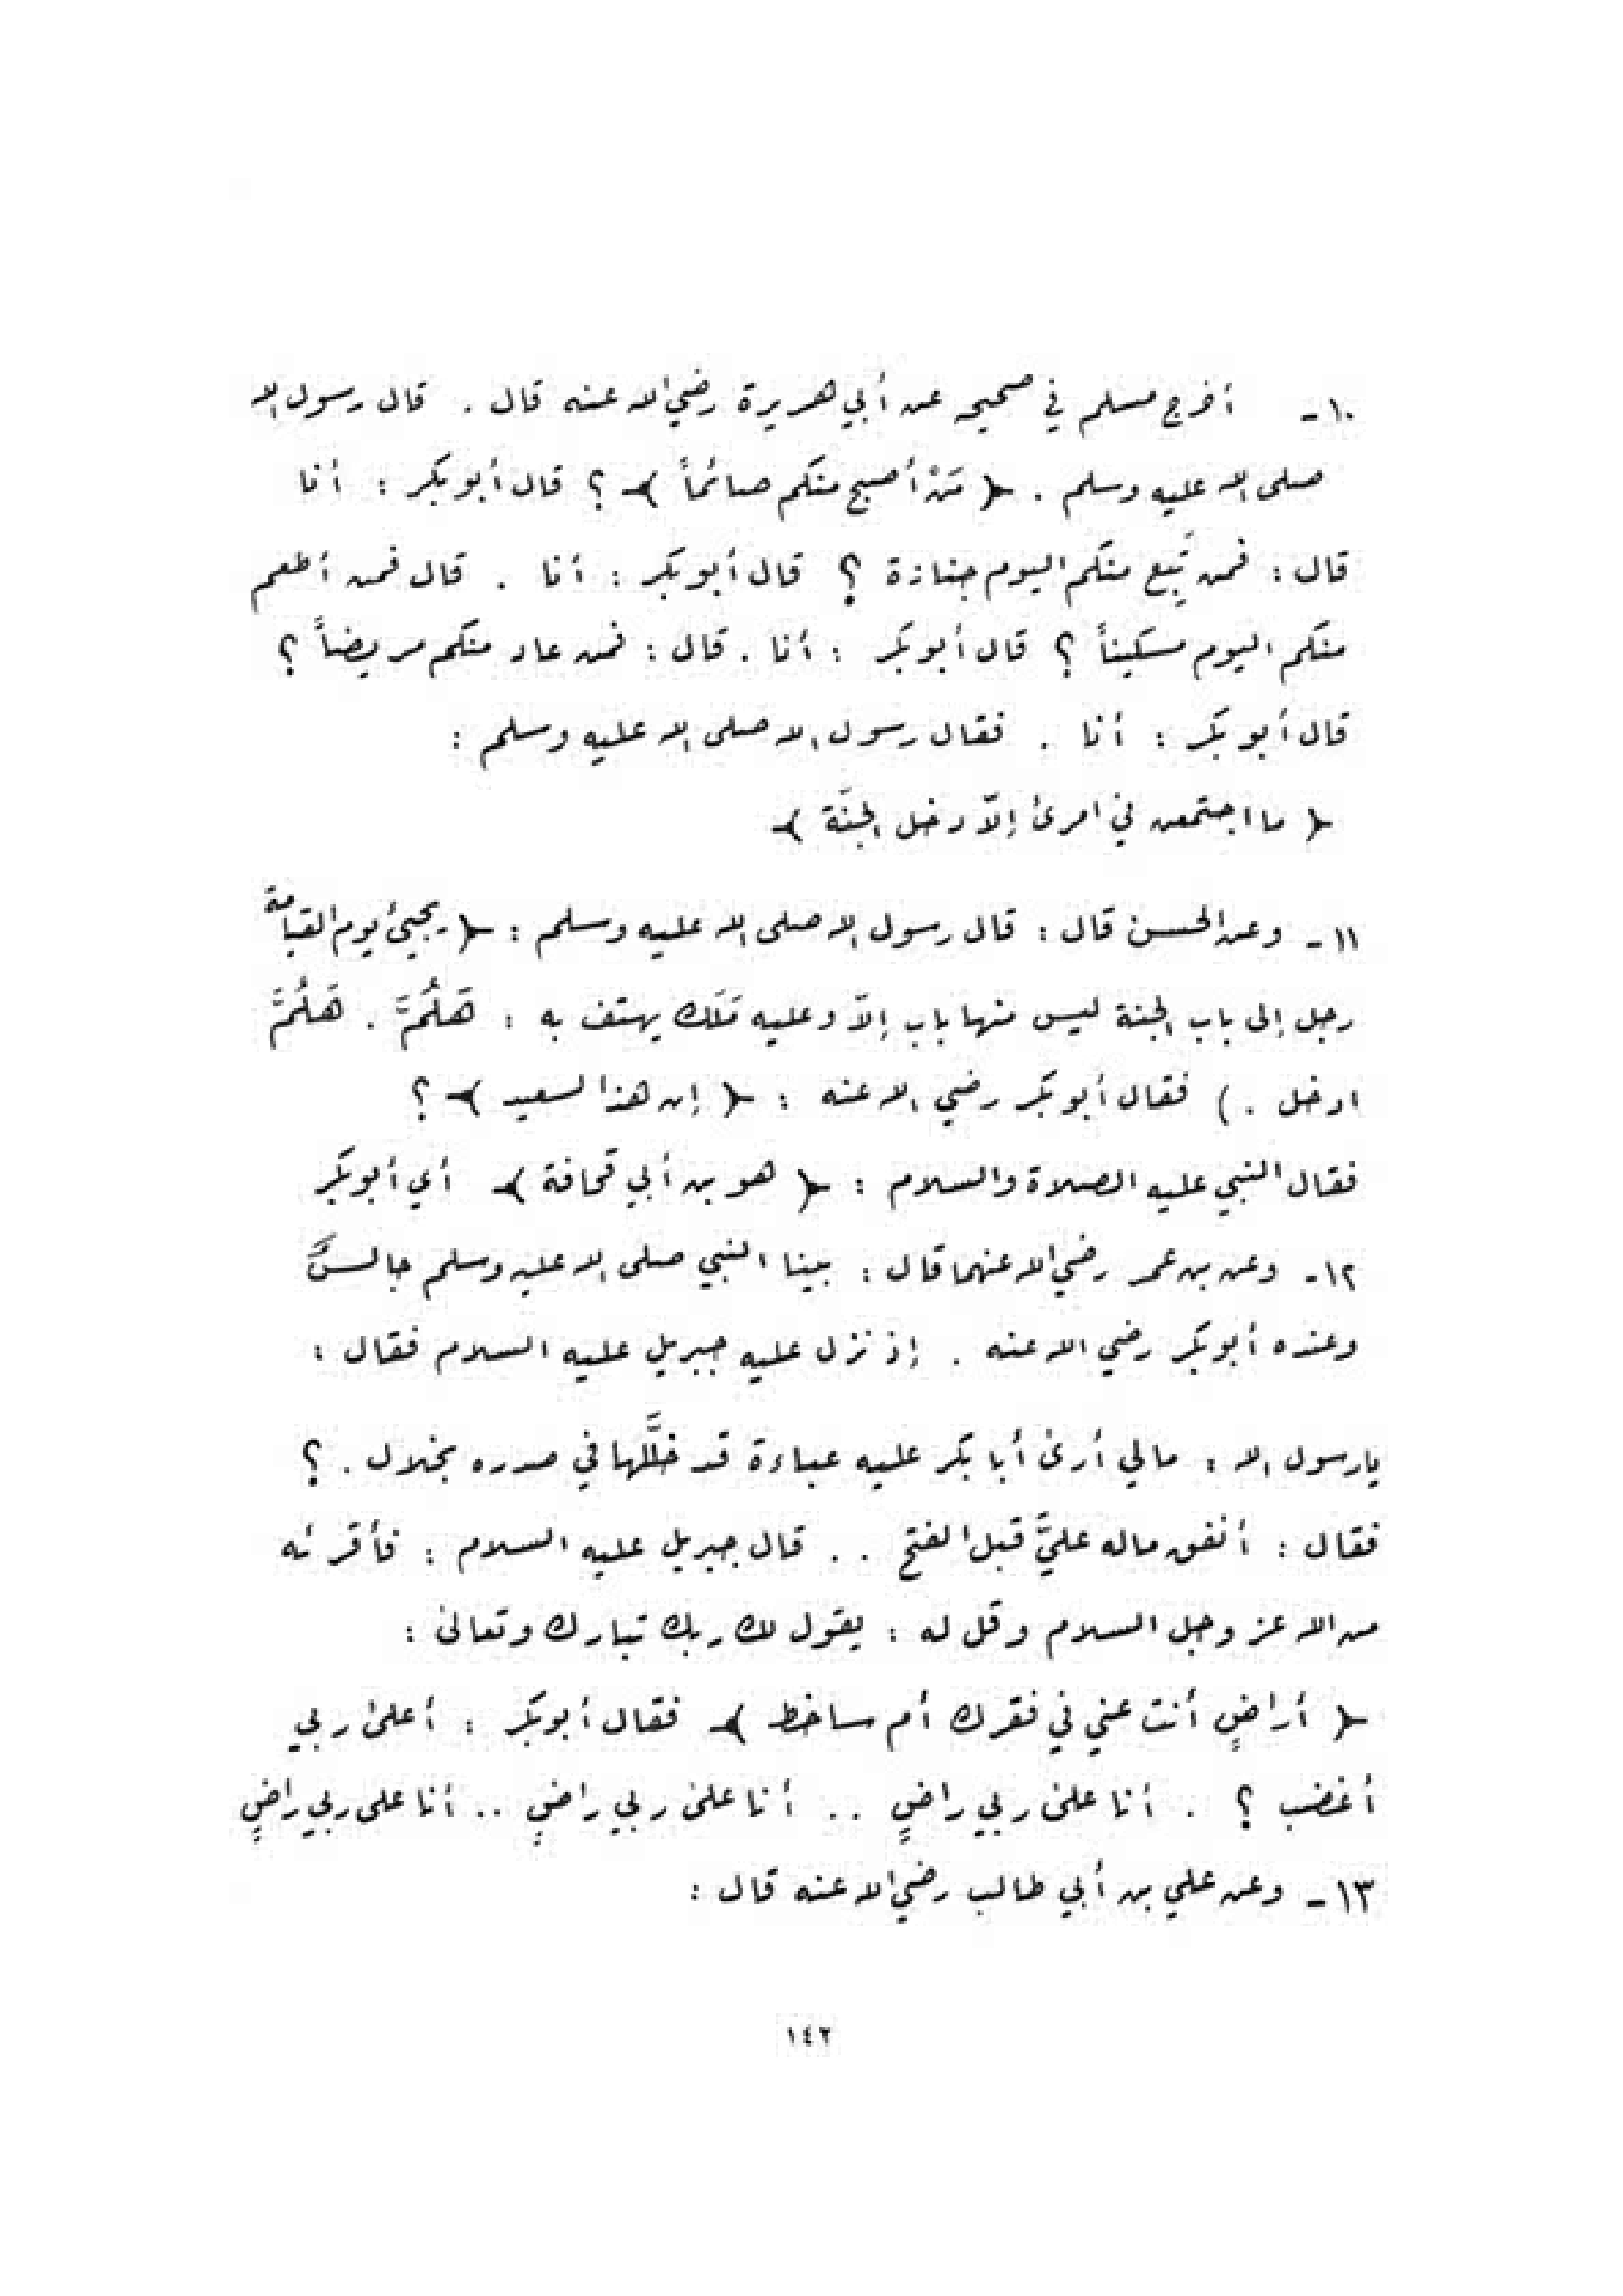 ١٠- أخرج مسلم في صحيحه عن أبي هريرة رضي الله عنه قال . قال رسول الله
صلى الله عليه وسلم . ﴿ مَنْ أصبح منكم صائماً ﴾ ؟ قال أبو بكر : أنا
قال : فمن تَبِع منكم اليوم جنازة ؟ قال أبو بكر : أنا . قال فمن أطعم
منكم اليوم مسكيناً ؟ قال أبو بكر : أنا . قال : فمن عاد منكم مريضاً ؟
قال أبو بكر : أنا . فقال رسول الله صلى الله عليه وسلم :
﴿ ما اجتمعن في امرئ إلاّ دخل الجنَة ﴾
١١- وعن الحسن قال : قال رسول الله صلى الله عليه وسلم : ﴿ يجيئ يوم القيامة
رجل إلى باب الجنة ليس منها باب إلاّ وعليه مَلَك يهتف به : هَلُمَّ . هَلُمَّ
ادخل . ) فقال أبو بكر رضي الله عنه : ﴿ إن هذا لسعيد ﴾ ؟
فقال النبي عليه الصلاة والسلام : ﴿ هو بن أبي قحافة ﴾ أي أبو بكر
١٢- وعن بن عمر رضي الله عنهما قال : بينا النبي صلى الله عليه وسلم جالسٌ
وعنده أبو بكر رضي الله عنه . إذ نزل عليه جبريل عليه السلام فقال :
يا رسول الله : مالي أرى أبا بكر عليه عباءة قد خلَّلها في صدره بخلال . ؟
فقال : أنفق ماله عليَّ قبل الفتح . . قال جبريل عليه السلام : فأقرئه
من الله عز وجل السلام وقل له : يقول لك ربك تبارك وتعالى :
﴿ أراضٍ أنت عني في فقرك أم ساخط ﴾ فقال أبو بكر : أعلى ربي
أغضب ؟ . أنا على ربي راضٍ . . أنا على ربي راضٍ . . أنا على ربي راضٍ
١٣- وعن علي بن أبي طالب رضي الله عنه قال :
١٤٢